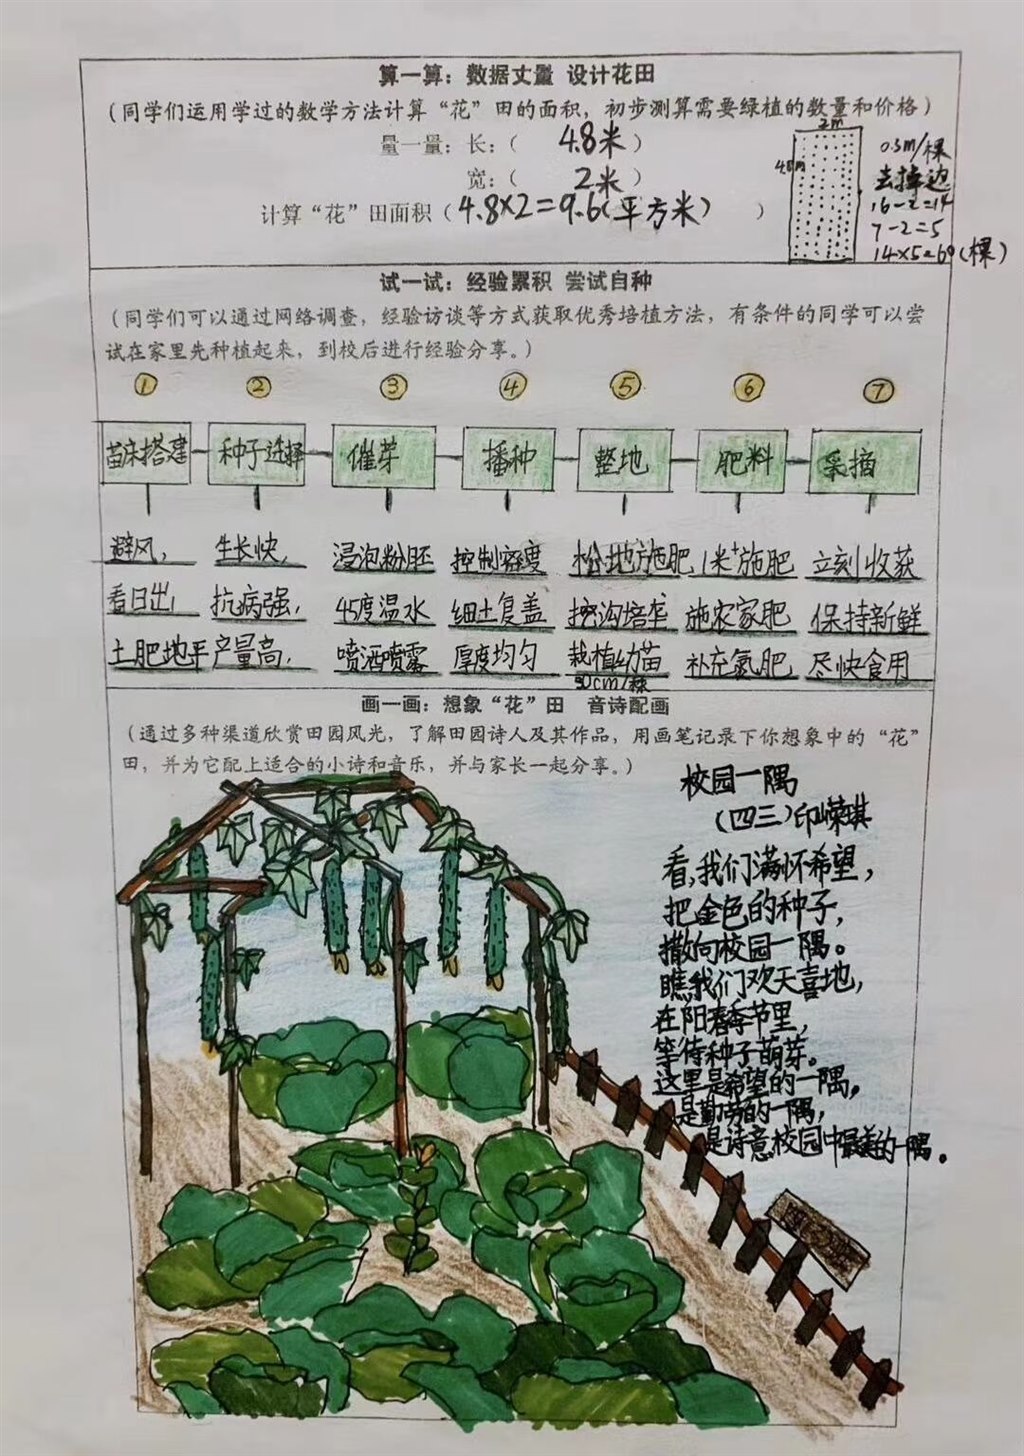 算一算：数据丈量 设计花田
（同学们运用学过的数学方法计算“花”田的面积，初步测算需要绿植的数量和价格）
量一量：长：（ 4.8米 ）
宽：（ 2米 ）
计算“花”田面积（ 4.8×2=9.6(平方米) ）
2m
4.8m
0.3m/棵
去掉边
16-2=14
7-2=5
14×5=60(棵)
试一试：经验累积 尝试自种
（同学们可以通过网络调查，经验访谈等方式获取优秀培植方法，有条件的同学可以尝
试在家里先种植起来，到校后进行经验分享。）
① ② ③ ④ ⑤ ⑥ ⑦
苗床搭建 种子选择 催芽 播种 整地 肥料 采摘
避风， 生长快， 浸泡粉胚 控制密度 松地施肥 1米+施肥 立刻收获
看日出， 抗病强， 45度温水 细土复盖 挖沟培牢 施农家肥 保持新鲜
土肥地平 产量高， 喷洒喷雾 厚度均匀 栽植幼苗 补充氮肥 尽快食用
30cm/株
画一画：想象“花”田 音诗配画
（通过多种渠道欣赏田园风光，了解田园诗人及其作品，用画笔记录下你想象中的“花”
田，并为它配上适合的小诗和音乐，并与家长一起分享。）
校园一隅
（四三）印嵘琪
看，我们满怀希望，
把金色的种子，
撒向校园一隅。
瞧，我们欢天喜地，
在阳春季节里，
等待种子萌芽。
这里是希望的一隅，
是勤劳的一隅，
是诗意校园中最美的一隅。